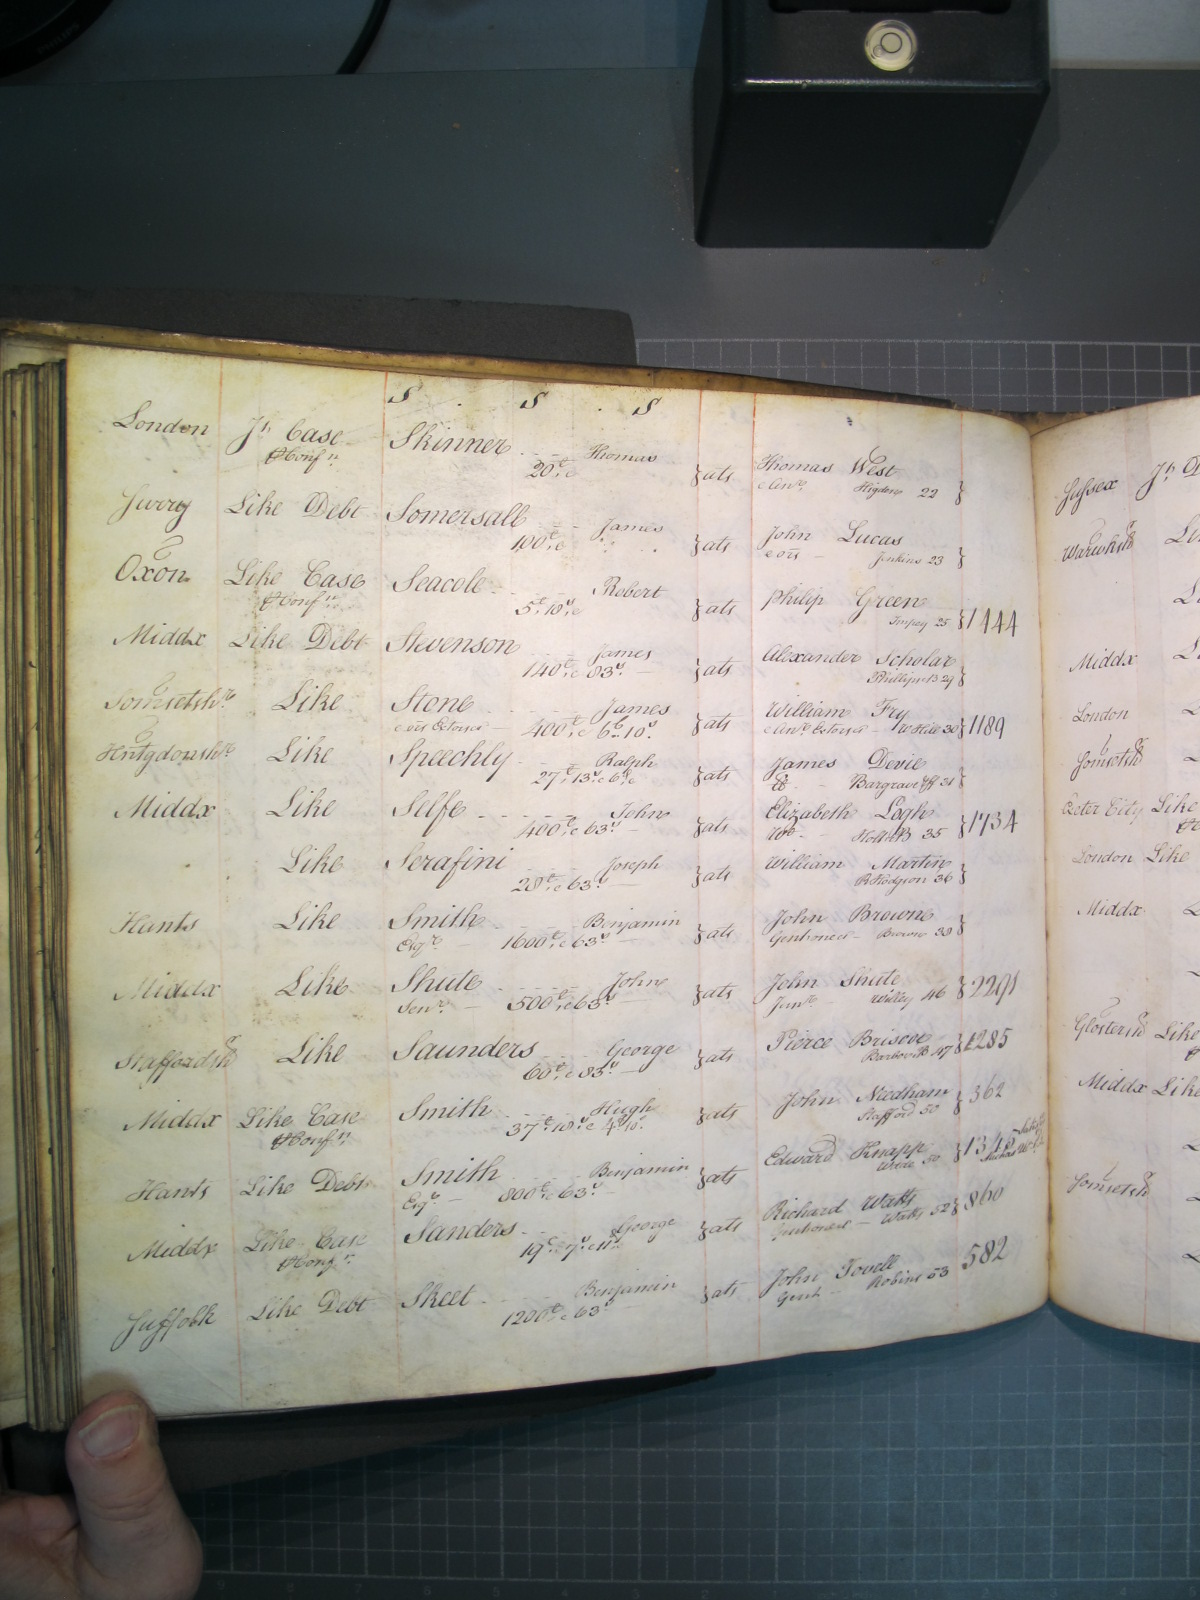 S . S . S
London Jt. Case Skinner Thomas } ats Thomas West }
& Conf n. 20£,, Higden 22
Surry Like Debt Somersall James } ats John Lucas }
100£,, Jenkins 23
Oxon Like Case Seacole Robert } ats Philip Green } 1444
& Conf n. 5£,,10s,, Impey 25
Middx Like Debt Stevenson James } ats Alexander Scholar }
140£ & 83s Phillips 29
Somsetsh. Like Stone James } ats William Fry } 1189
400£ & 6£..10s. W Hill 30
Hntgdonsh. Like Speechly Ralph } ats James Devie }
27£,,13s & Bargrave 31
Middx Like Selfe John } ats Elizabeth Logh } 1734
400£ & 63s 35
Like Serafini Joseph } ats William Martin }
28£,, & 63s R Hodgson 36
Hants Like Smith Benjamin } ats John Browne }
Esqr. 1600£,, & 63s Gent one &c Brown 38
Middx Like Shute John } ats John Shute } 2291
Senr. 500£,, & 63s Junr. Willey 46
Staffordsh Like Saunders George } ats Pierce Briscoe } 1285
60£,, & 83s 47
Middx Like Case Smith Hugh } ats John Needham } 362
& Conf n. 37£,,10s & 4£,,10s. Stafford 50
Hants Like Debt Smith Benjamin } ats Edward Knapp } 1345
Esqr 800£,, & 63s 50
Middx Like Case Sanders George } ats Richard Watts } 860
& Conf n. 19£,,7s,, Gent one &c Watts 52
Suffolk Like Debt Skeet Benjamin } ats John Tovell 582
1200£,, & 63s Gent Robins 53
Sussex Jt.
Warwicksh
Middx
London
Somsetsh
Exeter City Like
London Like
Middx
Glostersh Like
Middx Like
Somsetsh